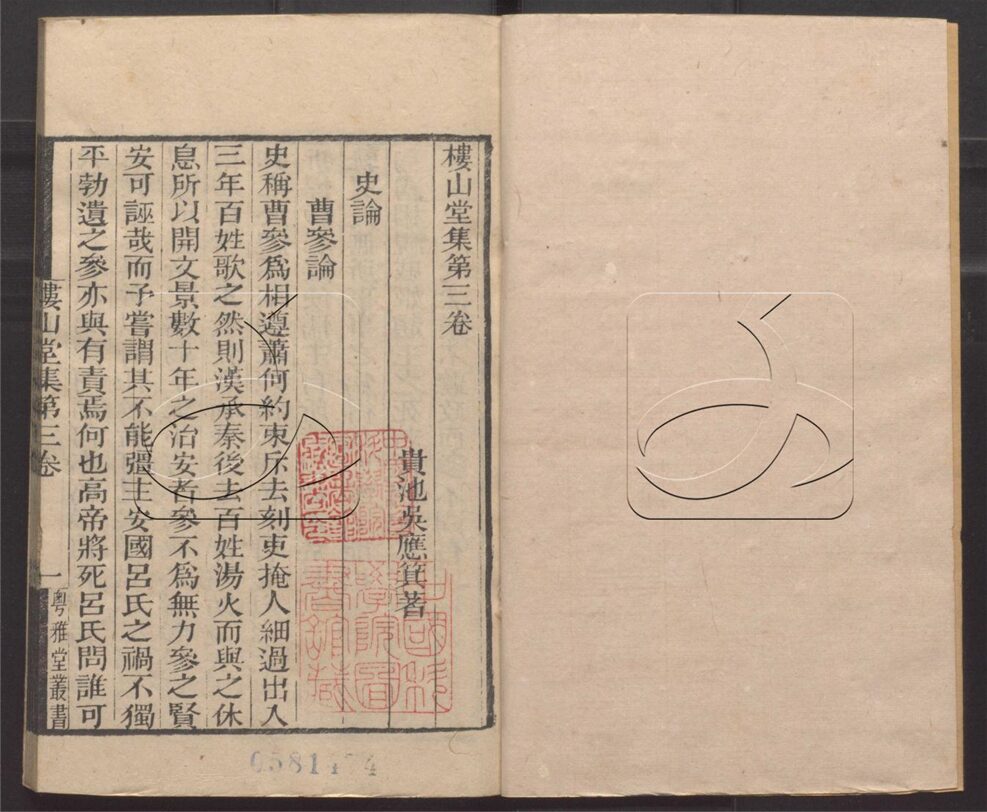 樓山堂集第三卷
貴池吳應箕著
史論
曹參論
史稱曹參爲相遵蕭何約束斥去刻吏掩人細過出入
三年百姓歌之然則漢承秦後去百姓湯火而與之休
息所以開文景數十年之治安者參不爲無力參之賢
安可誣哉而予嘗謂其不能彊主安國呂氏之禍不獨
平勃遺之參亦與有責焉何也高帝將死呂氏問誰可
樓山堂集第三卷
一
粵雅堂叢書